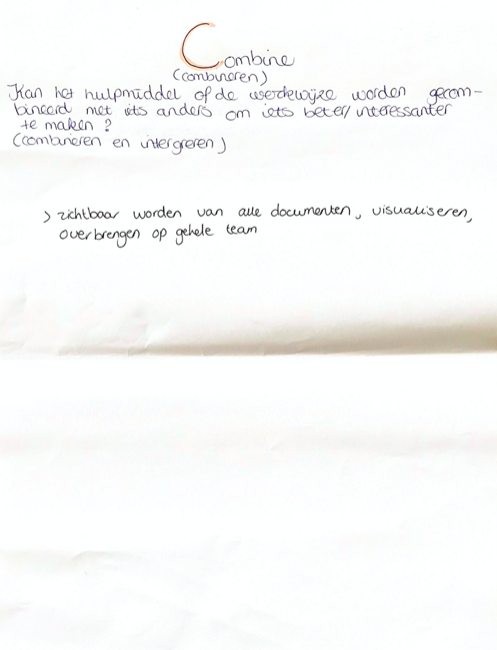 Combine
(combineren)
Kan het hulpmiddel of de werkewijze worden gecom-
bineerd met iets anders om iets beter/interessanter
te maken?
(combineren en intergreren)
> zichtbaar worden van alle documenten, visualiseren,
overbrengen op gehele team